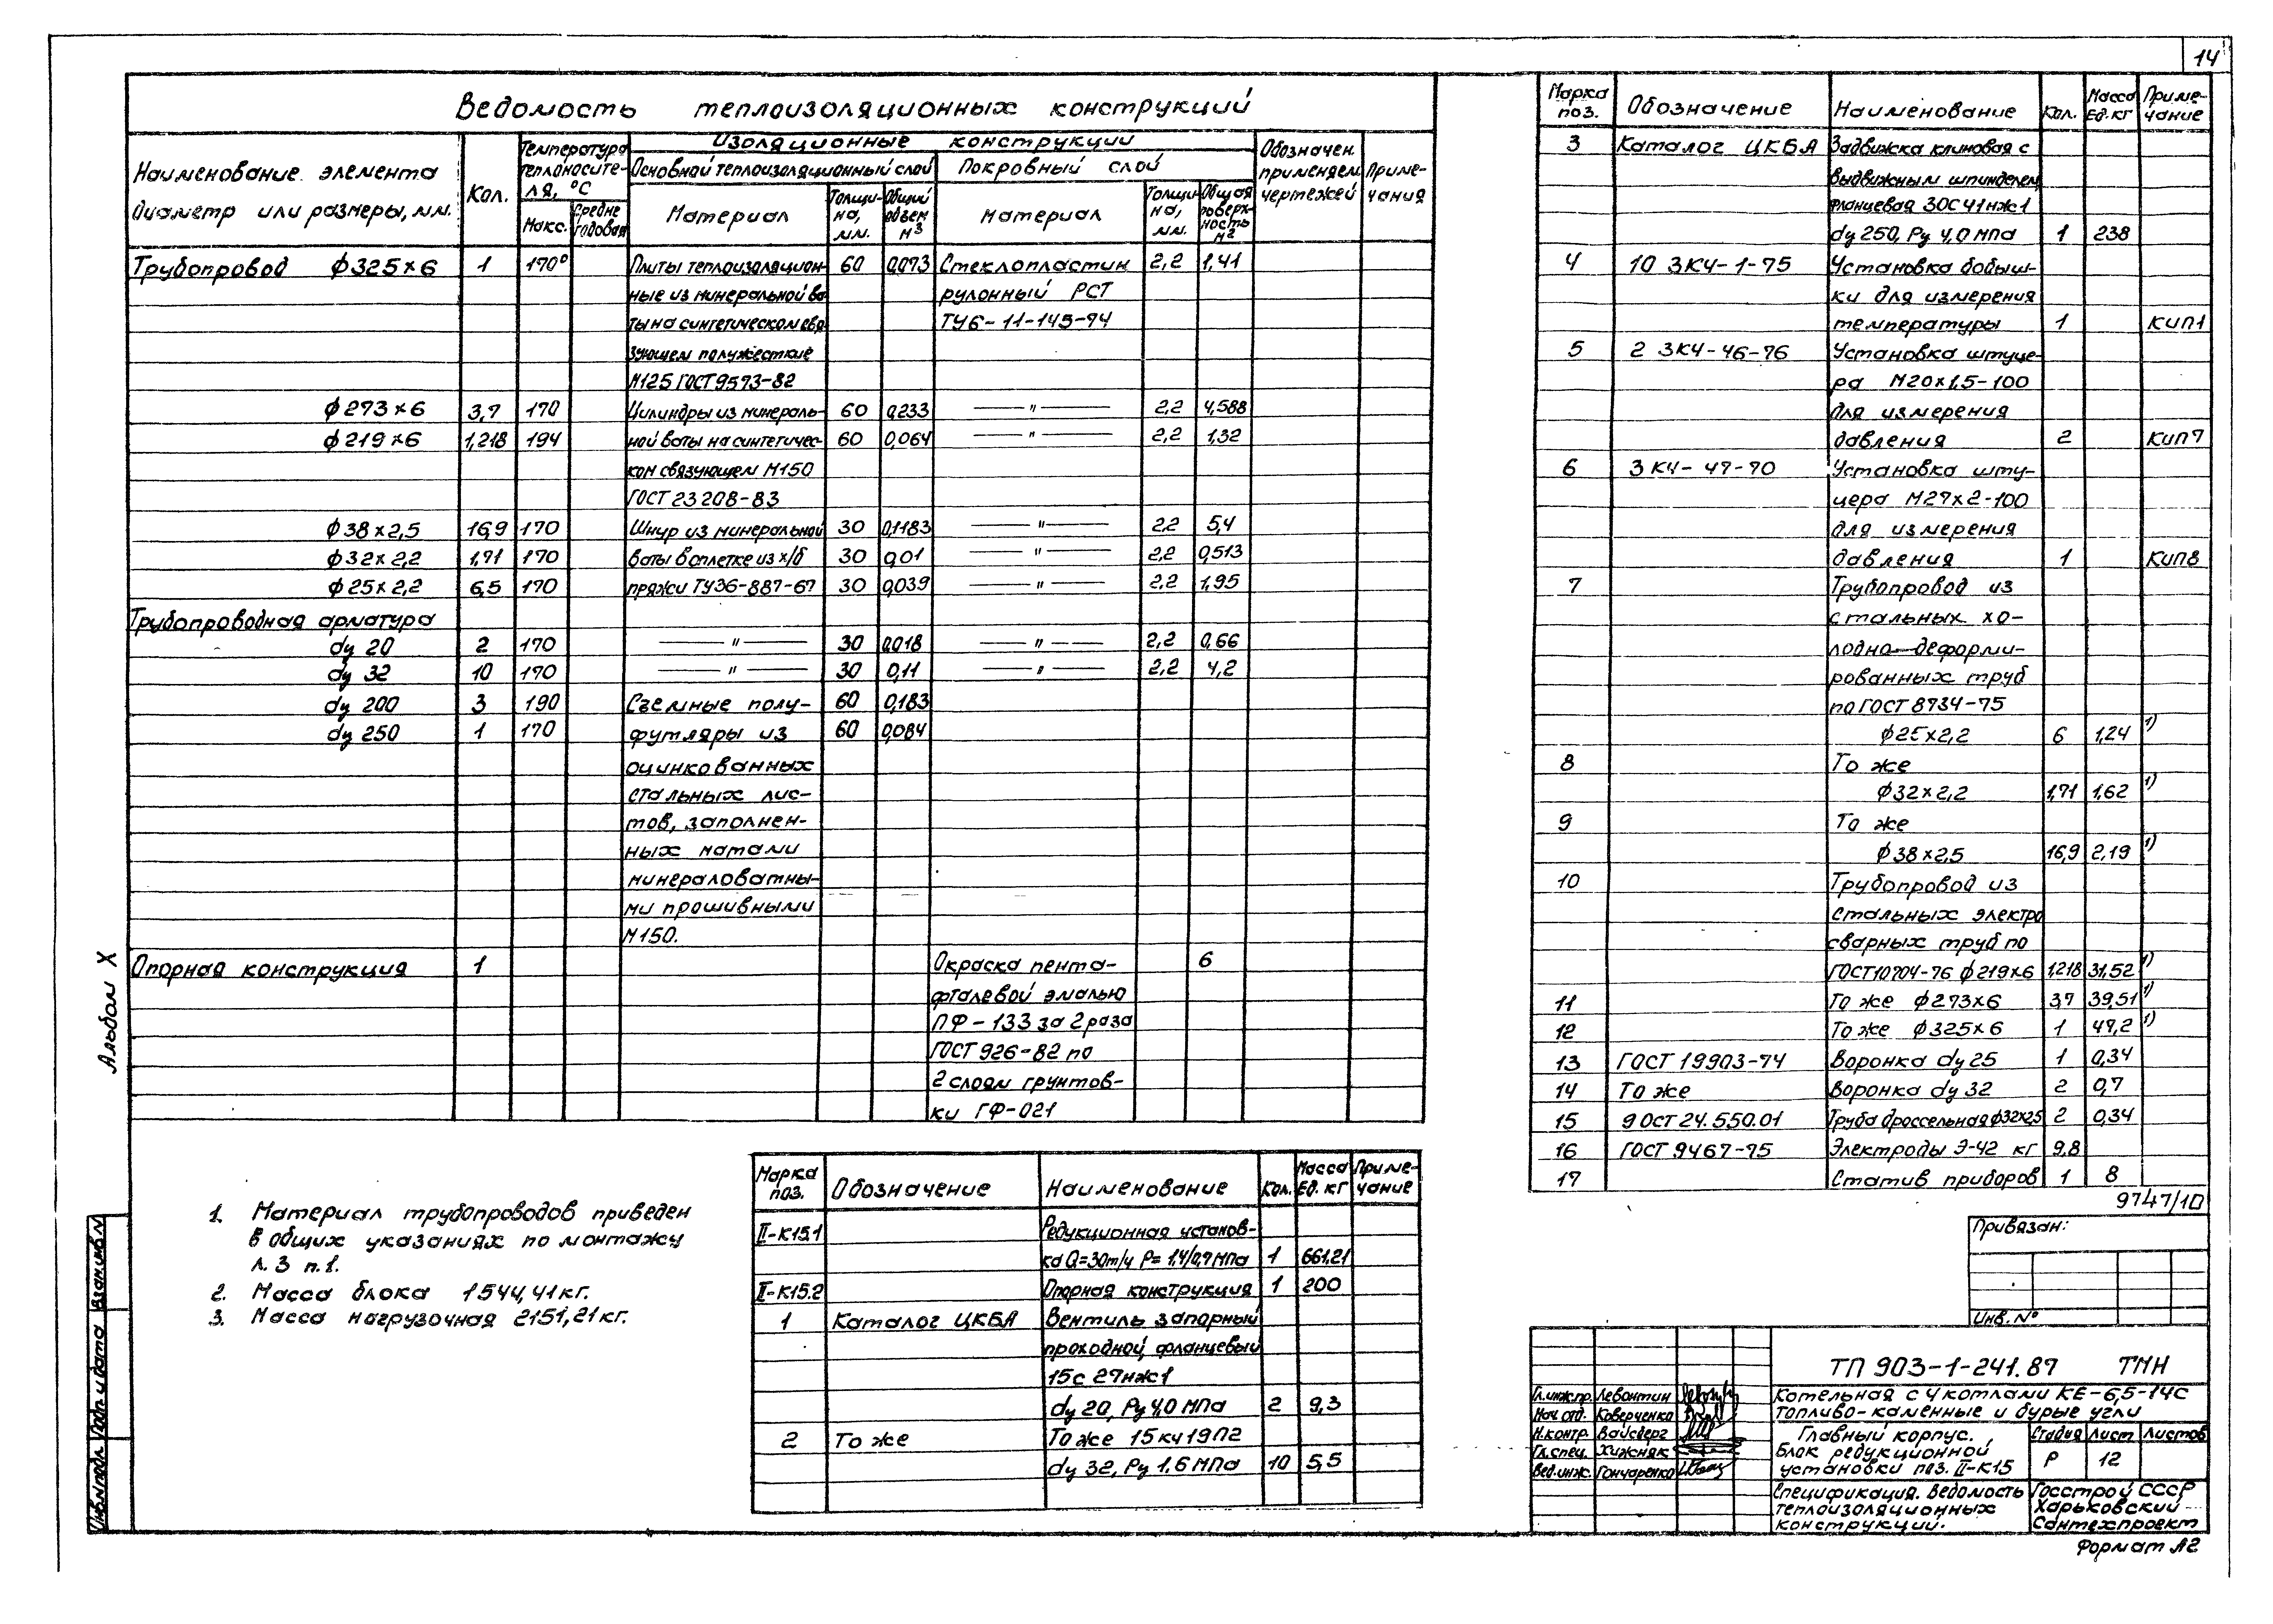 14
Ведомость теплоизоляционных конструкций
Наименование элемента диаметр или размеры, мм.
Кол.
Температура теплоносителя, °С
Макс.
Средне годовая
Изоляционные конструкции
Основной теплоизоляционный слой
Покровный слой
Материал
Толщина, мм.
Общий объем м³
Материал
Толщина, мм.
Общая поверхность м²
Обозначен. применяем. чертежей
Примечания
Трубопровод ϕ325×6 1 170° Плиты теплоизоляцион- 60 0,073 Стеклопластик 2,2 1,41
ные из минеральной ва- рулонный РСТ
ты на синтетическом свя- ТУ6-11-145-74
зующем полужесткие
М125 ГОСТ 9573-82
ϕ273×6 3,7 170 Цилиндры из минераль- 60 0,233 —〃— 2,2 4,588
ϕ219×6 1,218 194 ной ваты на синтетичес- 60 0,064 —〃— 2,2 1,32
ком связующем М150
ГОСТ 23208-83
ϕ38×2,5 16,9 170 Шнур из минеральной 30 0,1183 —〃— 2,2 5,4
ϕ32×2,2 1,71 170 ваты в оплетке из х/б 30 0,01 —〃— 2,2 0,513
ϕ25×2,2 6,5 170 пряжи ТУ36-887-67 30 0,039 —〃— 2,2 1,95
Трубопроводная арматура
dу 20 2 170 —〃— 30 0,018 —〃— 2,2 0,66
dу 32 10 170 —〃— 30 0,11 —〃— 2,2 4,2
dу 200 3 190 Съемные полу- 60 0,183
dу 250 1 170 футляры из 60 0,084
оцинкованных
стальных лис-
тов, заполнен-
ных матами
минераловатны-
ми прошивными
М150.
Опорная конструкция 1 Окраска пента- 6
фталевой эмалью
ПФ-133 за 2 раза
ГОСТ 926-82 по
2 слоям грунтов-
ки ГФ-021
Альбом X
1. Материал трубопроводов приведен
в общих указаниях по монтажу
л. 3 п. 1.
2. Масса блока 1544,41 кг.
3. Масса нагрузочная 2151,21 кг.
Марка поз. Обозначение Наименование Кол. Масса Ед. кг Примечание
II-К15.1 Редукционная установ-
ка Q=30т/ч Р=1,4/0,7 МПа 1 661,21
II-К15.2 Опорная конструкция 1 200
1 Каталог ЦКБА Вентиль запорный
проходной, фланцевый
15с 27нж1
dу 20, Ру 4,0 МПа 2 9,3
2 То же То же 15кч19П2
dу 32, Ру 1,6 МПа 10 5,5
Марка поз. Обозначение Наименование Кол. Масса Ед. кг Примечание
3 Каталог ЦКБА Задвижка клиновая с
выдвижным шпинделем,
фланцевая 30С41нж1
dу 250, Ру 4,0 МПа 1 238
4 10 ЗК4-1-75 Установка бобыш-
ки для измерения
температуры 1 КИП1
5 2 ЗК4-46-76 Установка штуце-
ра М20×1,5-100
для измерения
давления 2 КИП7
6 ЗК4-47-70 Установка шту-
цера М27×2-100
для измерения
давления 1 КИП8
7 Трубопровод из
стальных хо-
лодно-деформи-
рованных труб
по ГОСТ 8734-75
ϕ25×2,2 6 1,24 1)
8 То же
ϕ32×2,2 1,71 1,62 1)
9 То же
ϕ38×2,5 16,9 2,19 1)
10 Трубопровод из
стальных электро
сварных труб по
ГОСТ 10704-76 ϕ219×6 1,218 31,52 1)
11 То же ϕ273×6 3,7 39,51 1)
12 То же ϕ325×6 1 47,2 1)
13 ГОСТ 19903-74 Воронка dу 25 1 0,34
14 То же Воронка dу 32 2 0,7
15 9 ОСТ 24.550.01 Труба дроссельная ϕ32×2,5 2 0,34
16 ГОСТ 9467-75 Электроды Э-42 кг 9,8
17 Статив приборов 1 8
9747/10
Привязан:
Инв. №
ТП 903-1-241.87 ТМН
Котельная с 4 котлами КЕ-6,5-14С
Топливо-каменные и бурые угли
Гл.инж.пр. Левонтин
Нач. отд. Коверченко
Н.контр. Вайсберг
Гл.спец. Хижняк
Вед.инж. Гончаренко
Главный корпус.
Блок редукционной
установки поз. II-К15
Стадия Лист Листов
Р 12
Спецификация. Ведомость
теплоизоляционных
конструкций.
Госстрой СССР
Харьковский
Сантехпроект
Формат А2
Инв.№подл. Подп. и дата Взам.инв.№